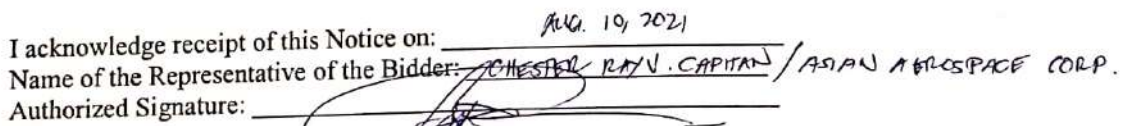 I acknowledge receipt of this Notice on: AUG. 10, 2021
Name of the Representative of the Bidder: CHESTER RAY V. CAPITAN / ASIAN AEROSPACE CORP.
Authorized Signature: